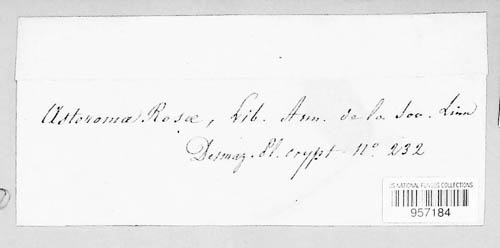 Asteroma Rosæ, Lib. Ann. de la Soc. Linn
Desmaz. Pl. crypt. N° 232
US NATIONAL FUNGUS COLLECTIONS
957184